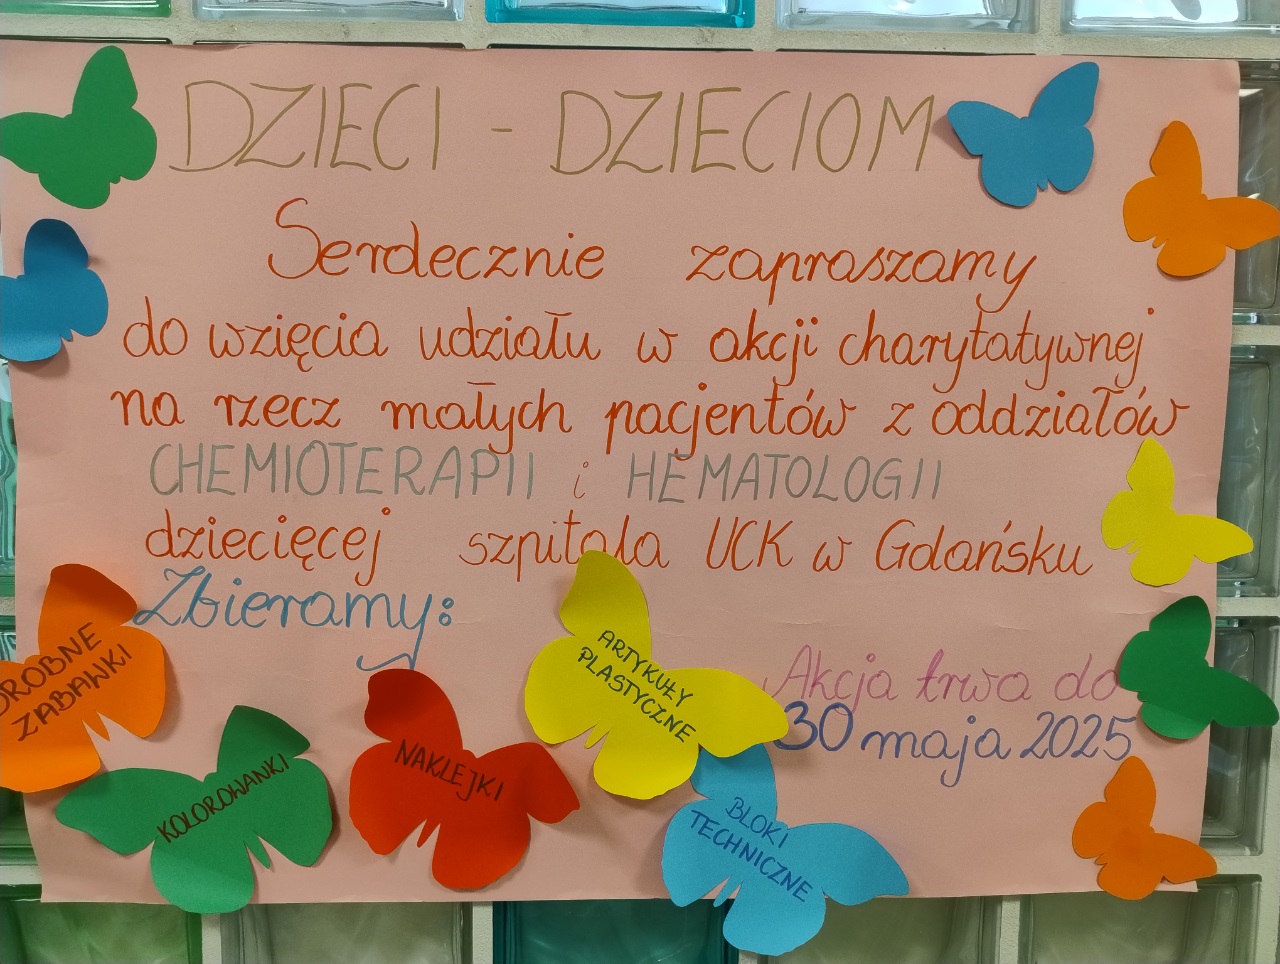 DZIECI - DZIECIOM
Serdecznie zapraszamy
do wzięcia udziału w akcji charytatywnej
na rzecz małych pacjentów z oddziałów
CHEMIOTERAPII i HEMATOLOGII
dziecięcej szpitala UCK w Gdańsku
Zbieramy:
DROBNE
ZABAWKI
KOLOROWANKI
NAKLEJKI
ARTYKUŁY
PLASTYCZNE
BLOKI
TECHNICZNE
Akcja trwa do
30 maja 2025